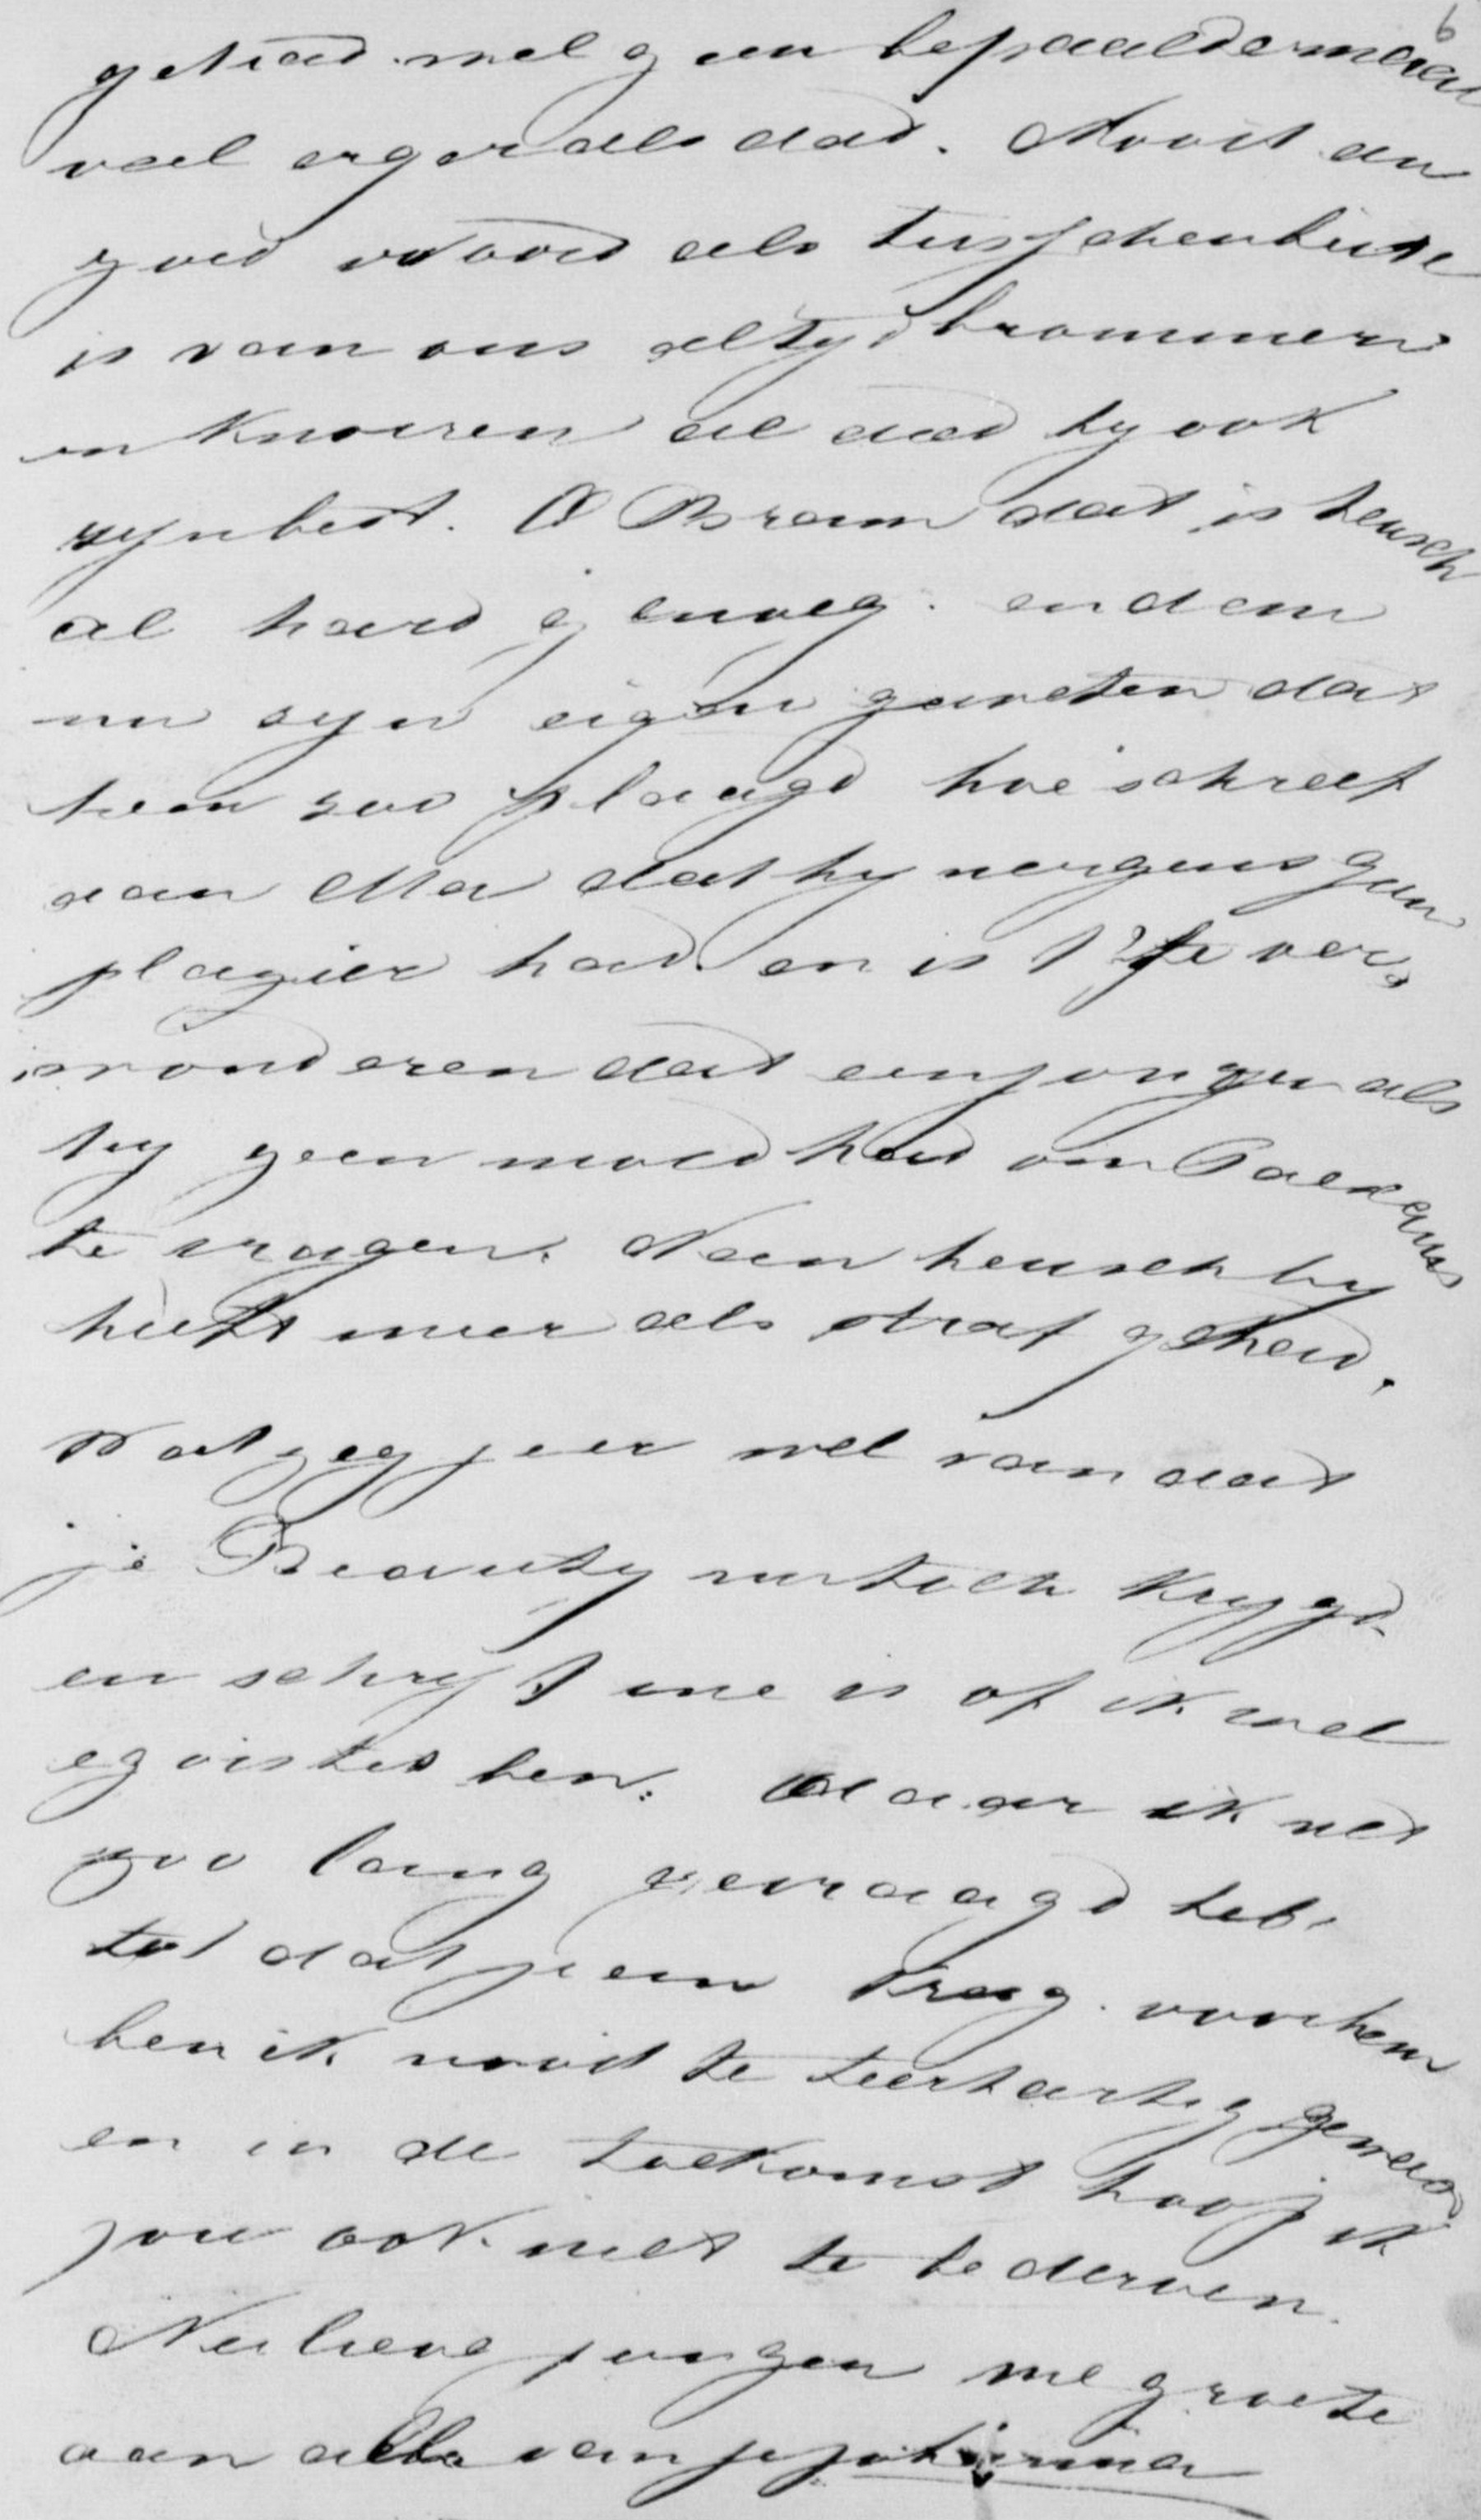 6
gehad wel geen bepaalde maar
veel erger als dat. Nooit een
goed woord als tusschenbeide
is van ons altyd brommen
en knorren al deed hy ook
zyn best. O Bram dat is heusch
al hard genoeg. en dan
nu zyn eigen geweten dat
hem zoo plaagd hoe schreef
aan Ma dat hy nergens geen
plezier had. en is 't te ver-
wonderen dat een jongen als
hy geen moed had om Pardon
te vragen. Neen heusch hy
heeft meer als straf gehad.
Wat zeg je er wel van dat
je Beauty nu toch krygd.
en schryf me is of ik wel
egoiste ben. daar ik net
zoo lang gevraagd heb.
tot dat je em kreeg. voor hem
ben ik nooit te teerhartig geweest
en in de toekomst hoop ik
jou ook niet te bederven.
Nu lieve jongen me groete
aan alle van je